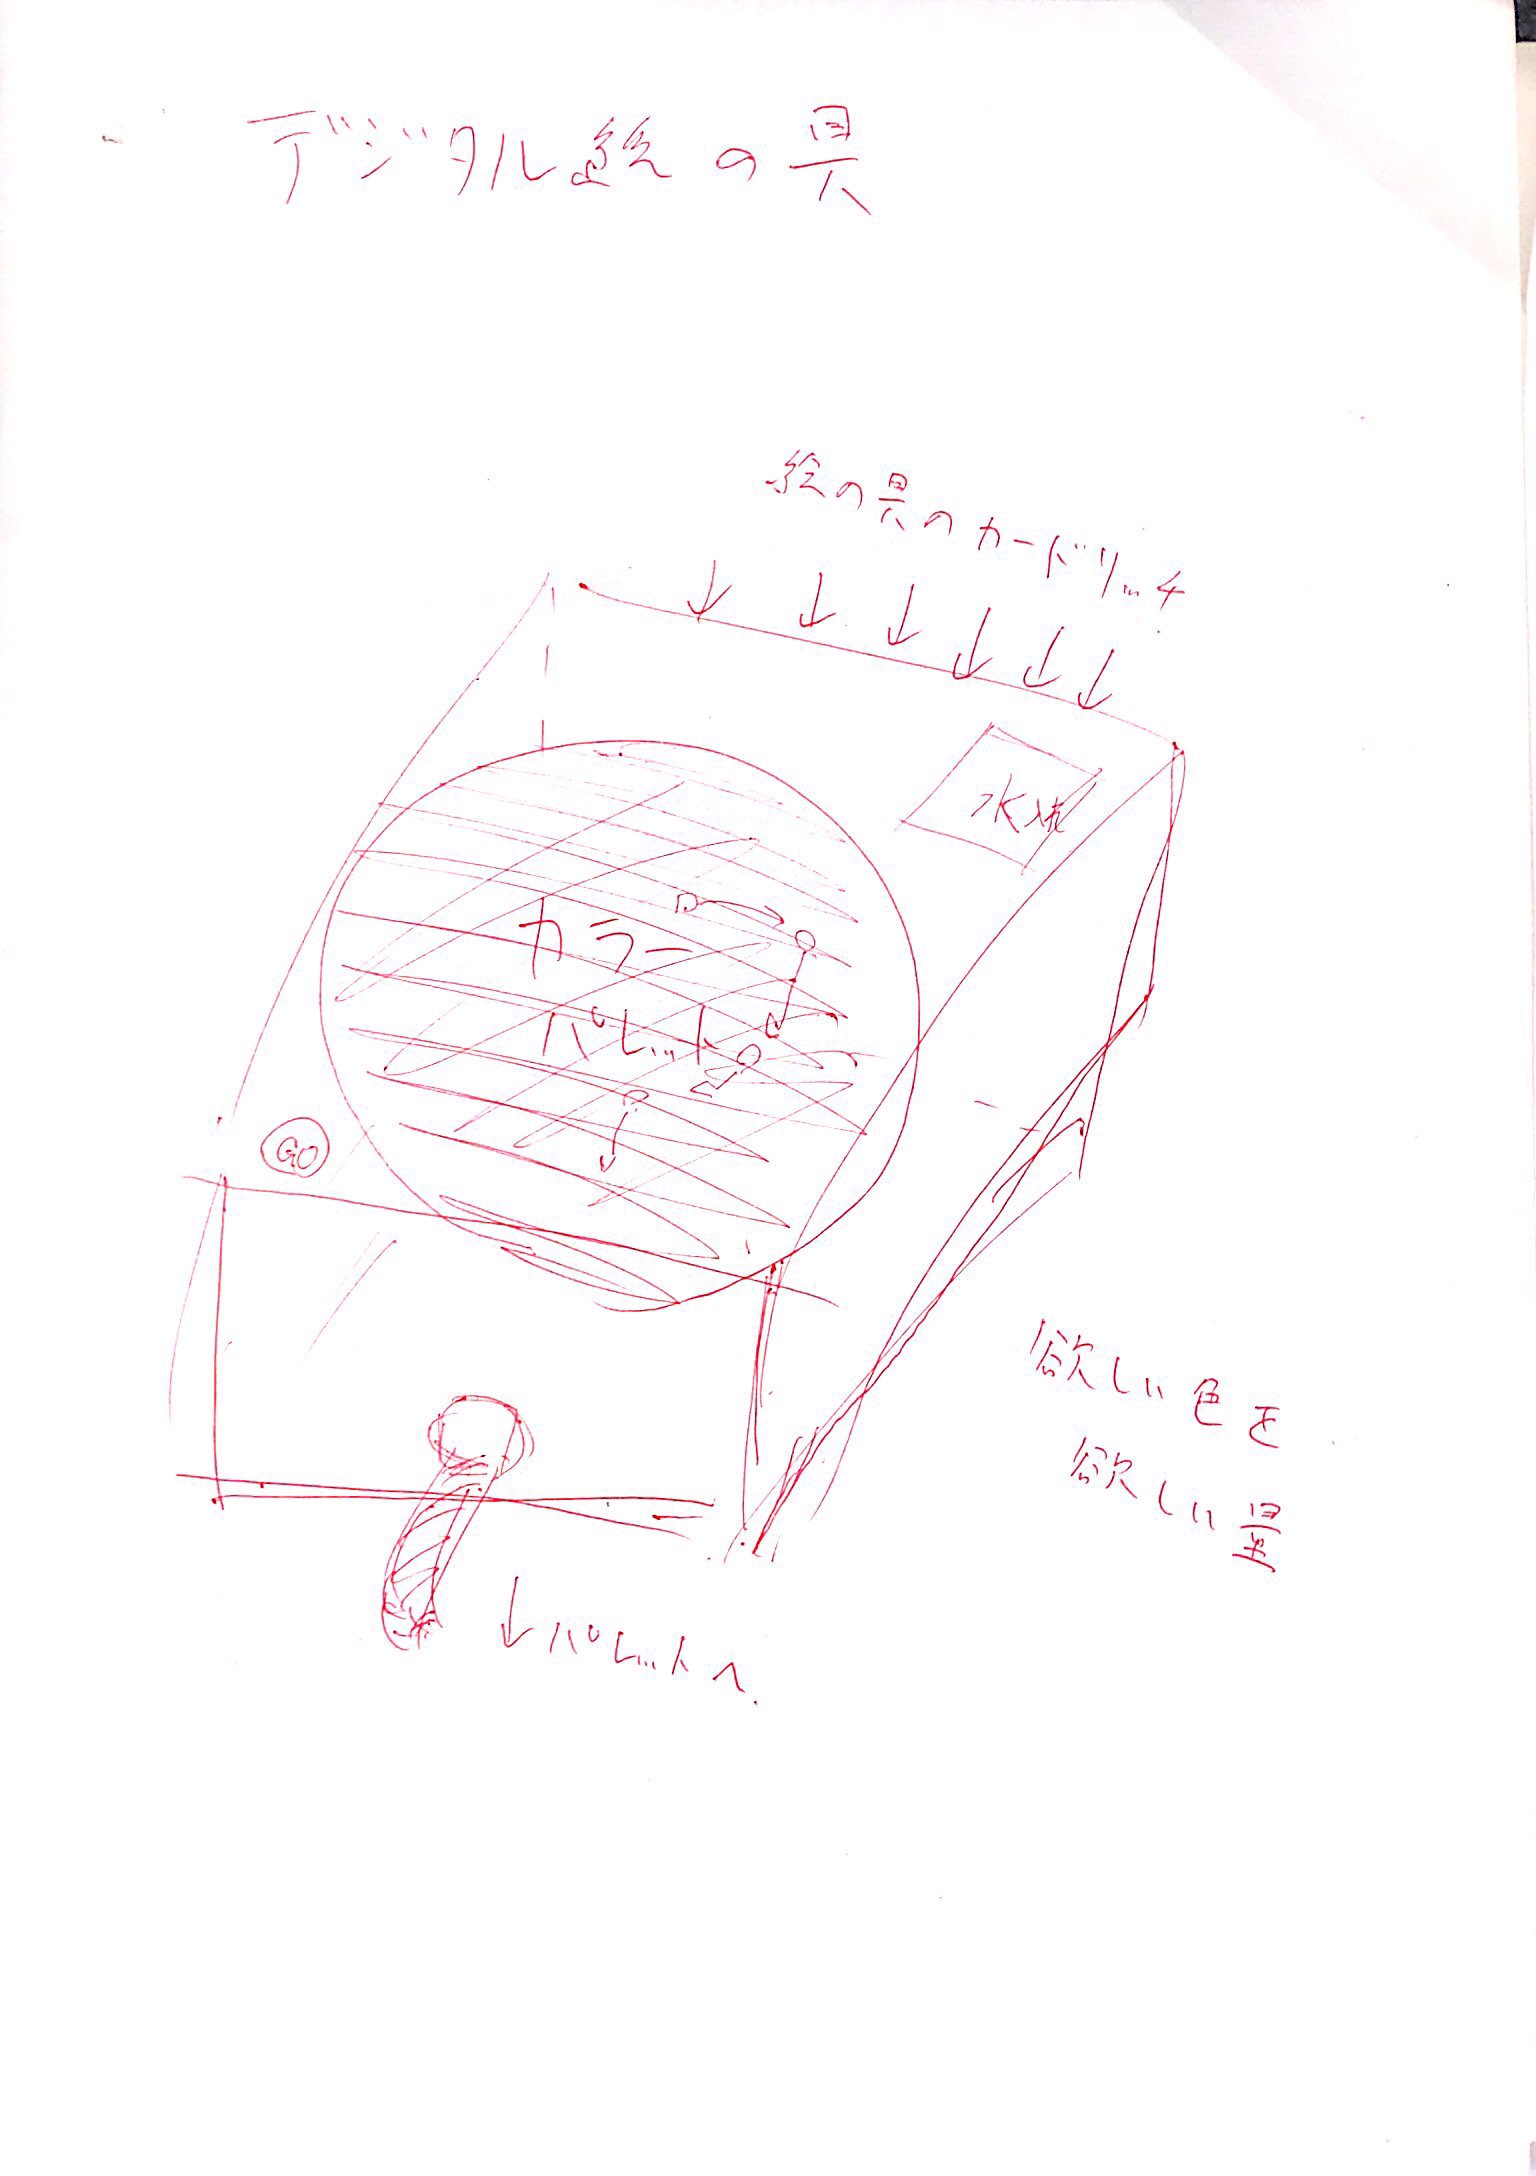 デジタル絵の具
絵の具のカードリッチ
水入
カラー
パレット
GO
欲しい色を
欲しい量
↓パレットへ.